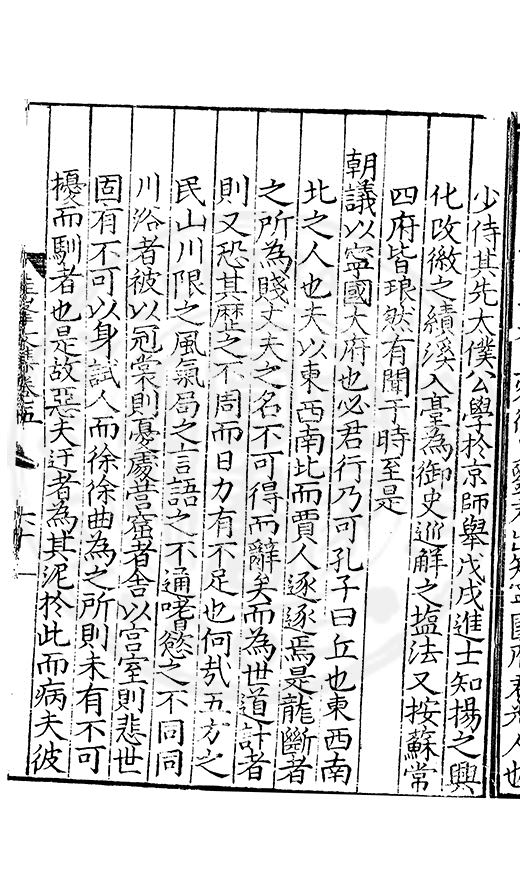 少侍其先太僕公學於京師舉戊戌進士知揚之興
化改徽之績溪入臺為御史巡解之塩法又按蘇常
四府皆琅然有聞于時至是
朝議以寧國大府也必君行乃可孔子曰丘也東西南
北之人也夫以東西南北而賈人逐逐焉是龍斷者
之所為賤丈夫之名不可得而辭矣而為世道計者
則又恐其歷之不周而日力有不足也何㢤五方之
民山川限之風氣局之言語之不通嗜慾之不同同
川浴者被以冠裳則憂處營窟者舍以宮室則悲世
固有不可以身試人而徐徐曲為之所則未有不可
擾而馴者也是故惡夫迂者為其泥於此而病夫彼